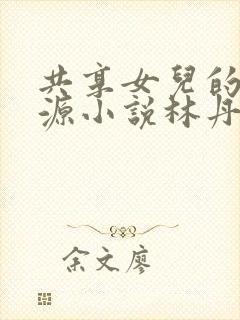 共享女兒的
源小說林丹
余文廖